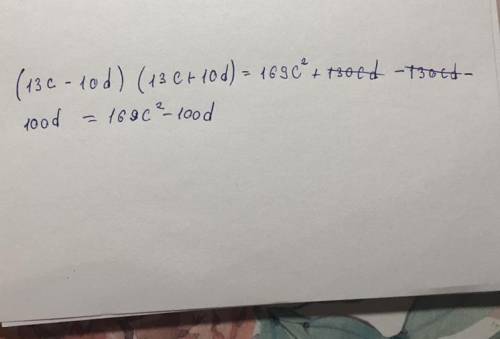 (13c - 10d) (13c + 10d) = 169c² + 130cd - 130cd -
100d = 169c² - 100d